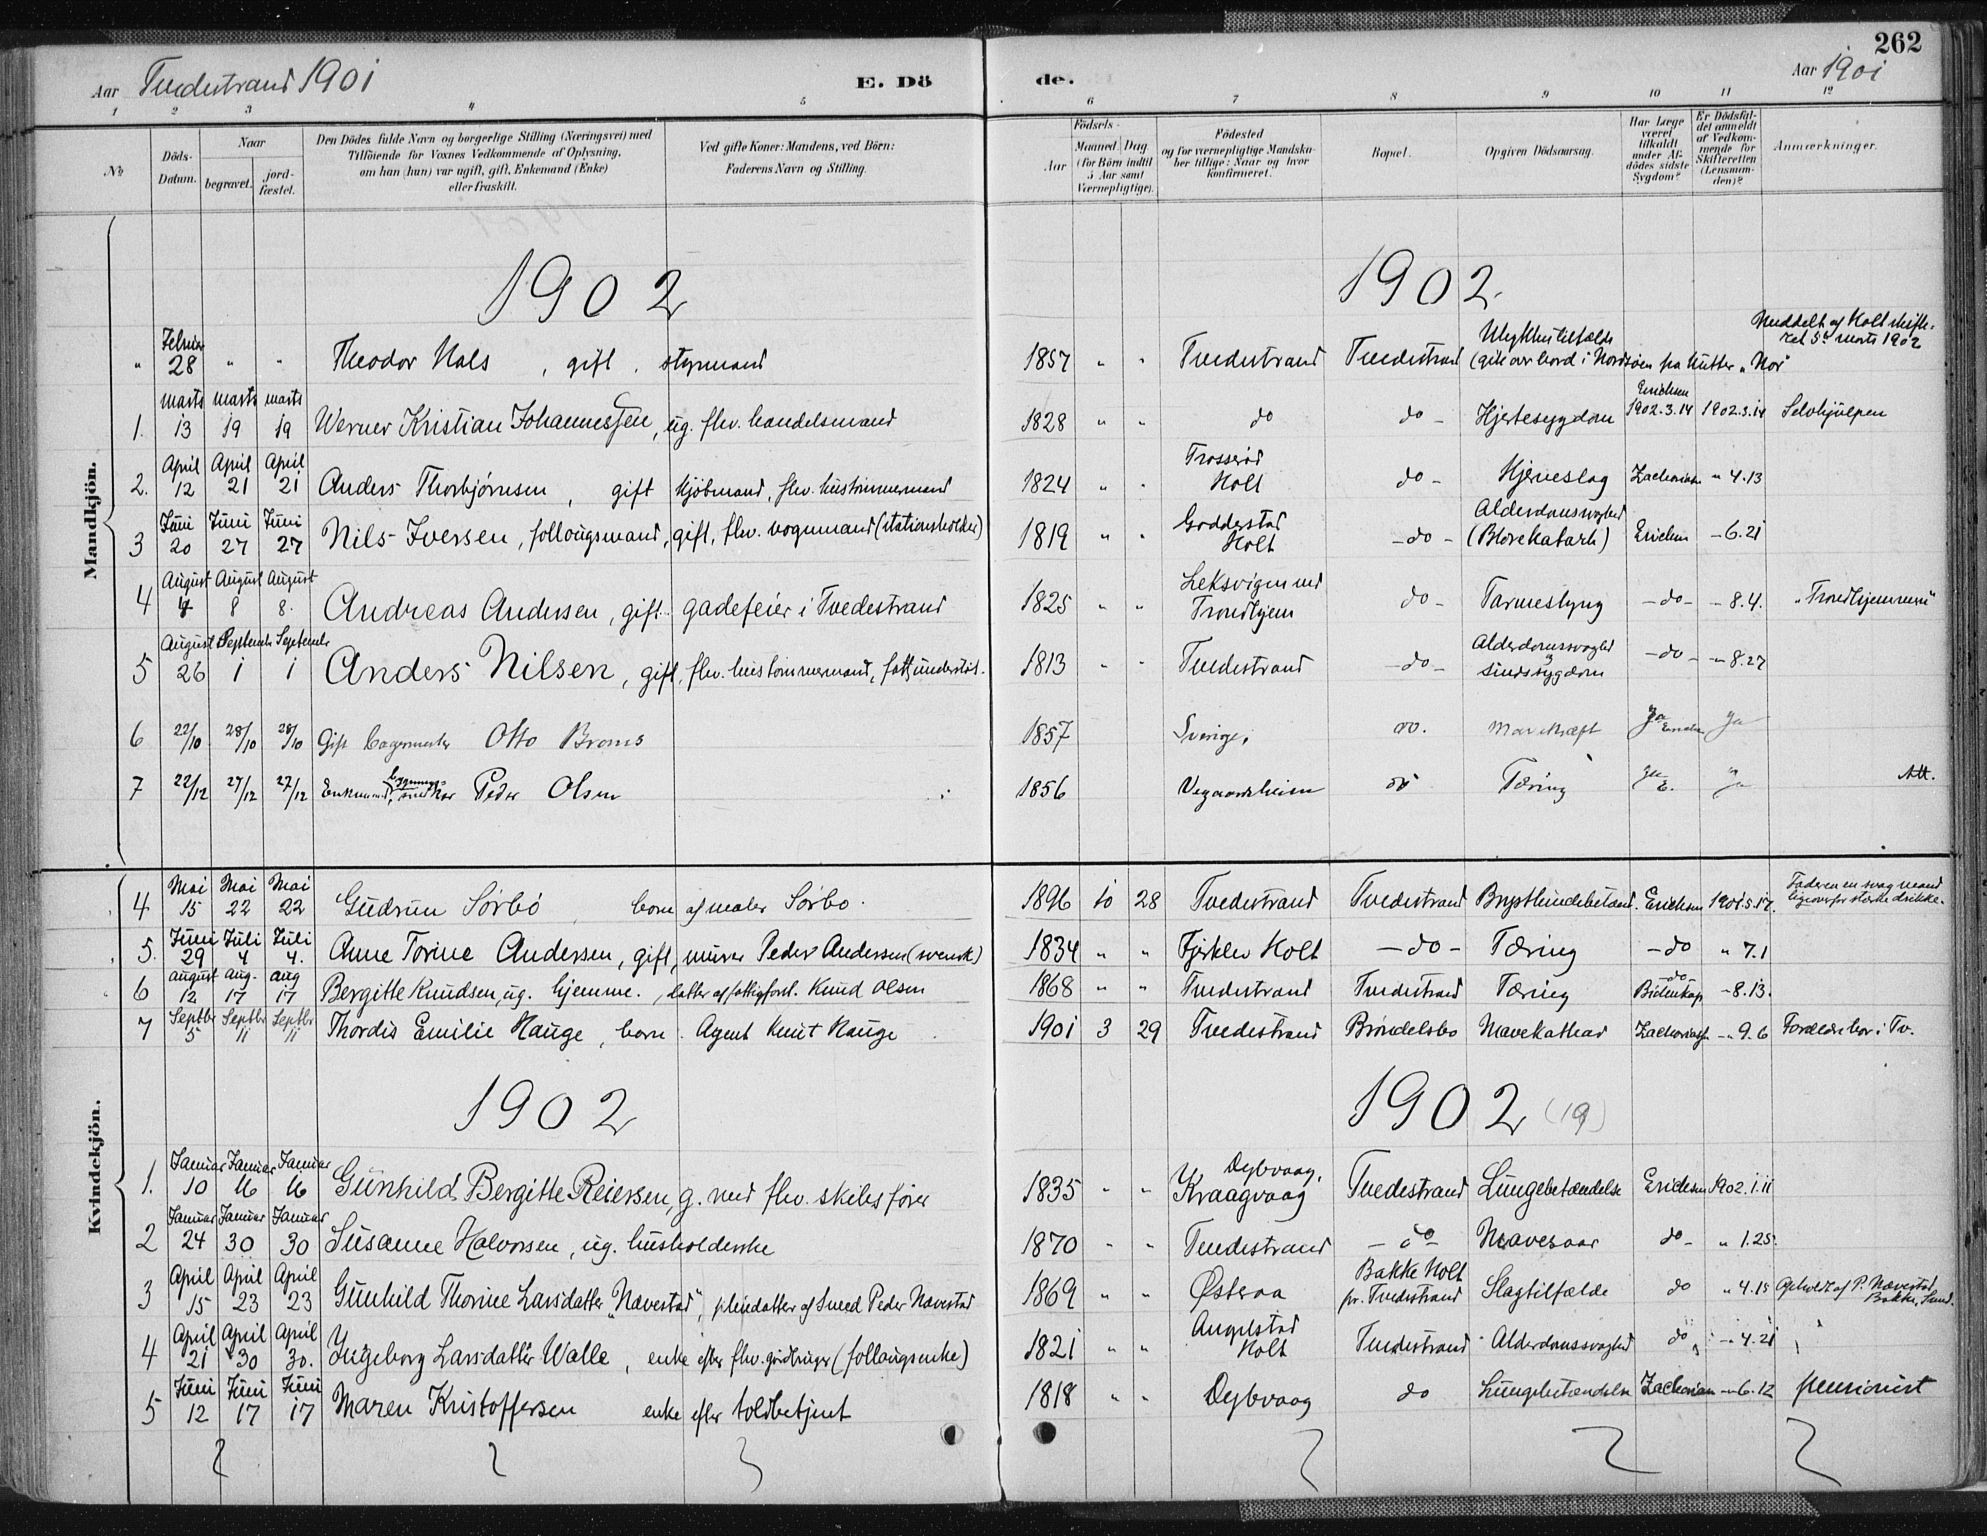 262
Aar Tvedestrand 1901 E. Dö de. Aar 1901
1 2 3 4 5 6 7 8 9 10 11 12
No
Döds-Datum.
Naar
begravet.
jord-fæstet.
Den Dödes fulde Navn og borgerlige Stilling (Næringsvei) med
Tilföiende for Voxnes Vedkommende af Oplysning,
om han (hun) var ugift, gift, Enkemand (Enke)
eller fraskilt.
Ved gifte Koner: Mandens, ved Börn:
Faderens Navn og Stilling.
Födsels-
Aar
Maaned Dag
(for Börn indtil
5 Aar samt
Værnepligtige).
Födested
og for værnepligtige Mandska-
ber tillige: Naar og hvor
konfirmeret.
Bopæl.
Opgiven Dödsaarsag.
Har Læge
været
tilkaldt
under Af-
dödes sidste
Sygdom?
Er Dödsfal-
det anmeldt
af Vedkom-
mende for
Skifteretten
(Lensman-
den)?
Anmærkninger.
Mandkjön.
1902 1902
" Februar 28 " " Theodor Hals, gift, styrmand 1857 " " Tvedestrand Tvedestrand Ulykkestilfælde (gik over bord i Nordsøen fra kutter "Nor" Meddelt af Holt skifteret 5te marts 1902
1. marts 13 marts 19 marts 19 Werner Kristian Johannessen, ug. flv. handelsmand 1828 " " do do Hjertesygdom Erichsen 1902.3.14 1902.3.14 Selvhjulpen
2. April 12 April 21 April 21 Anders Thorbjørnsen, gift kjøbmand, flv. hustømmermand 1824 " " Trosserød Holt do Hjerneslag Zachariasen " 4.13
3 Juni 20 Juni 27 Juni 27 Nils Iversen, follougsmand, gift, flv. vognmand (stationsholder) 1819 " " Godderstad Holt do Alderdomssvaghed (Blærekatarh) Erichsen 6.21
4 August 4 August 8 August 8. Andreas Andersen, gift gadefeier i Tvedestrand 1825 " " Leksvigen ved Trondhjem do Tarmeslyng do 8.4. "Trondhjemmeren"
5 August 26 September 1 September 1 Anders Nilsen, gift, flv. hustømmermand, fattigunderstøt. 1813 " " Tvedestrand do Alderdomssvaghed & sindssygdom do 8.27
6 22/10 28/10 28/10 Gift bagermester Otto Broms 1857 Sverige. do. Mavekræft Ja Erichsen Ja
7 22/12 27/12 27/12 Enkemand, bygningssnedker Peder Olsen 1856 Vegaardsheien do Tæring Ja E. Ja Att.
Kvindekjön.
4 Mai 15 Mai 22 Mai 22 Gudrun Sørbø, barn af maler Sørbø. 1896 10 28 Tvedestrand Tvedestrand Brysthindebetænd. Erichsen 1901.5.17. Faderen en svag mand ligeoverfor stærke drikke.
5. Juni 29 Juli 4 Juli 4. Anne Torine Andersen, gift, murer Peder Andersen (svensk) 1834 " " Fjerklev Holt do Tæring do " 7.1
6 august 12 aug. 17 aug 17 Bergitte Knudsen, ug. hjemme, datter af fattigforst. Knud Olsen 1868 " " Tvedestrand Tvedestrand Tæring do 8.13.
7 Septbr 5 Septbr 11 Septbr 11 Thordis Emilie Hauge, barn. Agent Knut Hauge 1901 3 29 Tvedestrand Brøndelsbo Mavekathar Zachariasen 9.6 Forældre bor i Tv.
1902 1902 (19)
1. Januar 10 Januar 16 Januar 16 Gunhild Bergitte Reiersen, g. med flv. skibsfører 1835 " " Dybvaag, Kraagvaag Tvedestrand Lungebetændelse Erichsen 1902.1.11
2 Januar 24 Januar 30 Januar 30 Susanne Halvorsen, ug. husholderske 1870 " " Tvedestrand do Mavesaar do " 1.25.
3 April 15 April 23 April 23 Gunhild Thorine Larsdatter "Nævestad", pleiedatter af Sned Peder Nævestad 1869 " " Østeraa Bakke Holt pr. Tvedestrand Slagtilfælde do " 4.15 Opholdt af P. Nævestad Bakke, Sund.
4 April 21 April 30 April 30. Ingeborg Larsdatter Walle, enke efter flv. gårdbruger (follougsenke) 1821 " " Angelstad Holt Tvedestrand Alderdomssvaghed do 4.21
5 Juni 12 Juni 17 Juni 17 Maren Kristoffersen enke efter toldbetjent 1818 " " Dybvaag do Lungebetændelse Zachariasen 6.12 pensionist